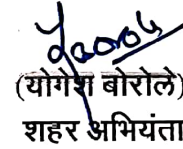 (योगेश बोरोले)
शहर अभियंता